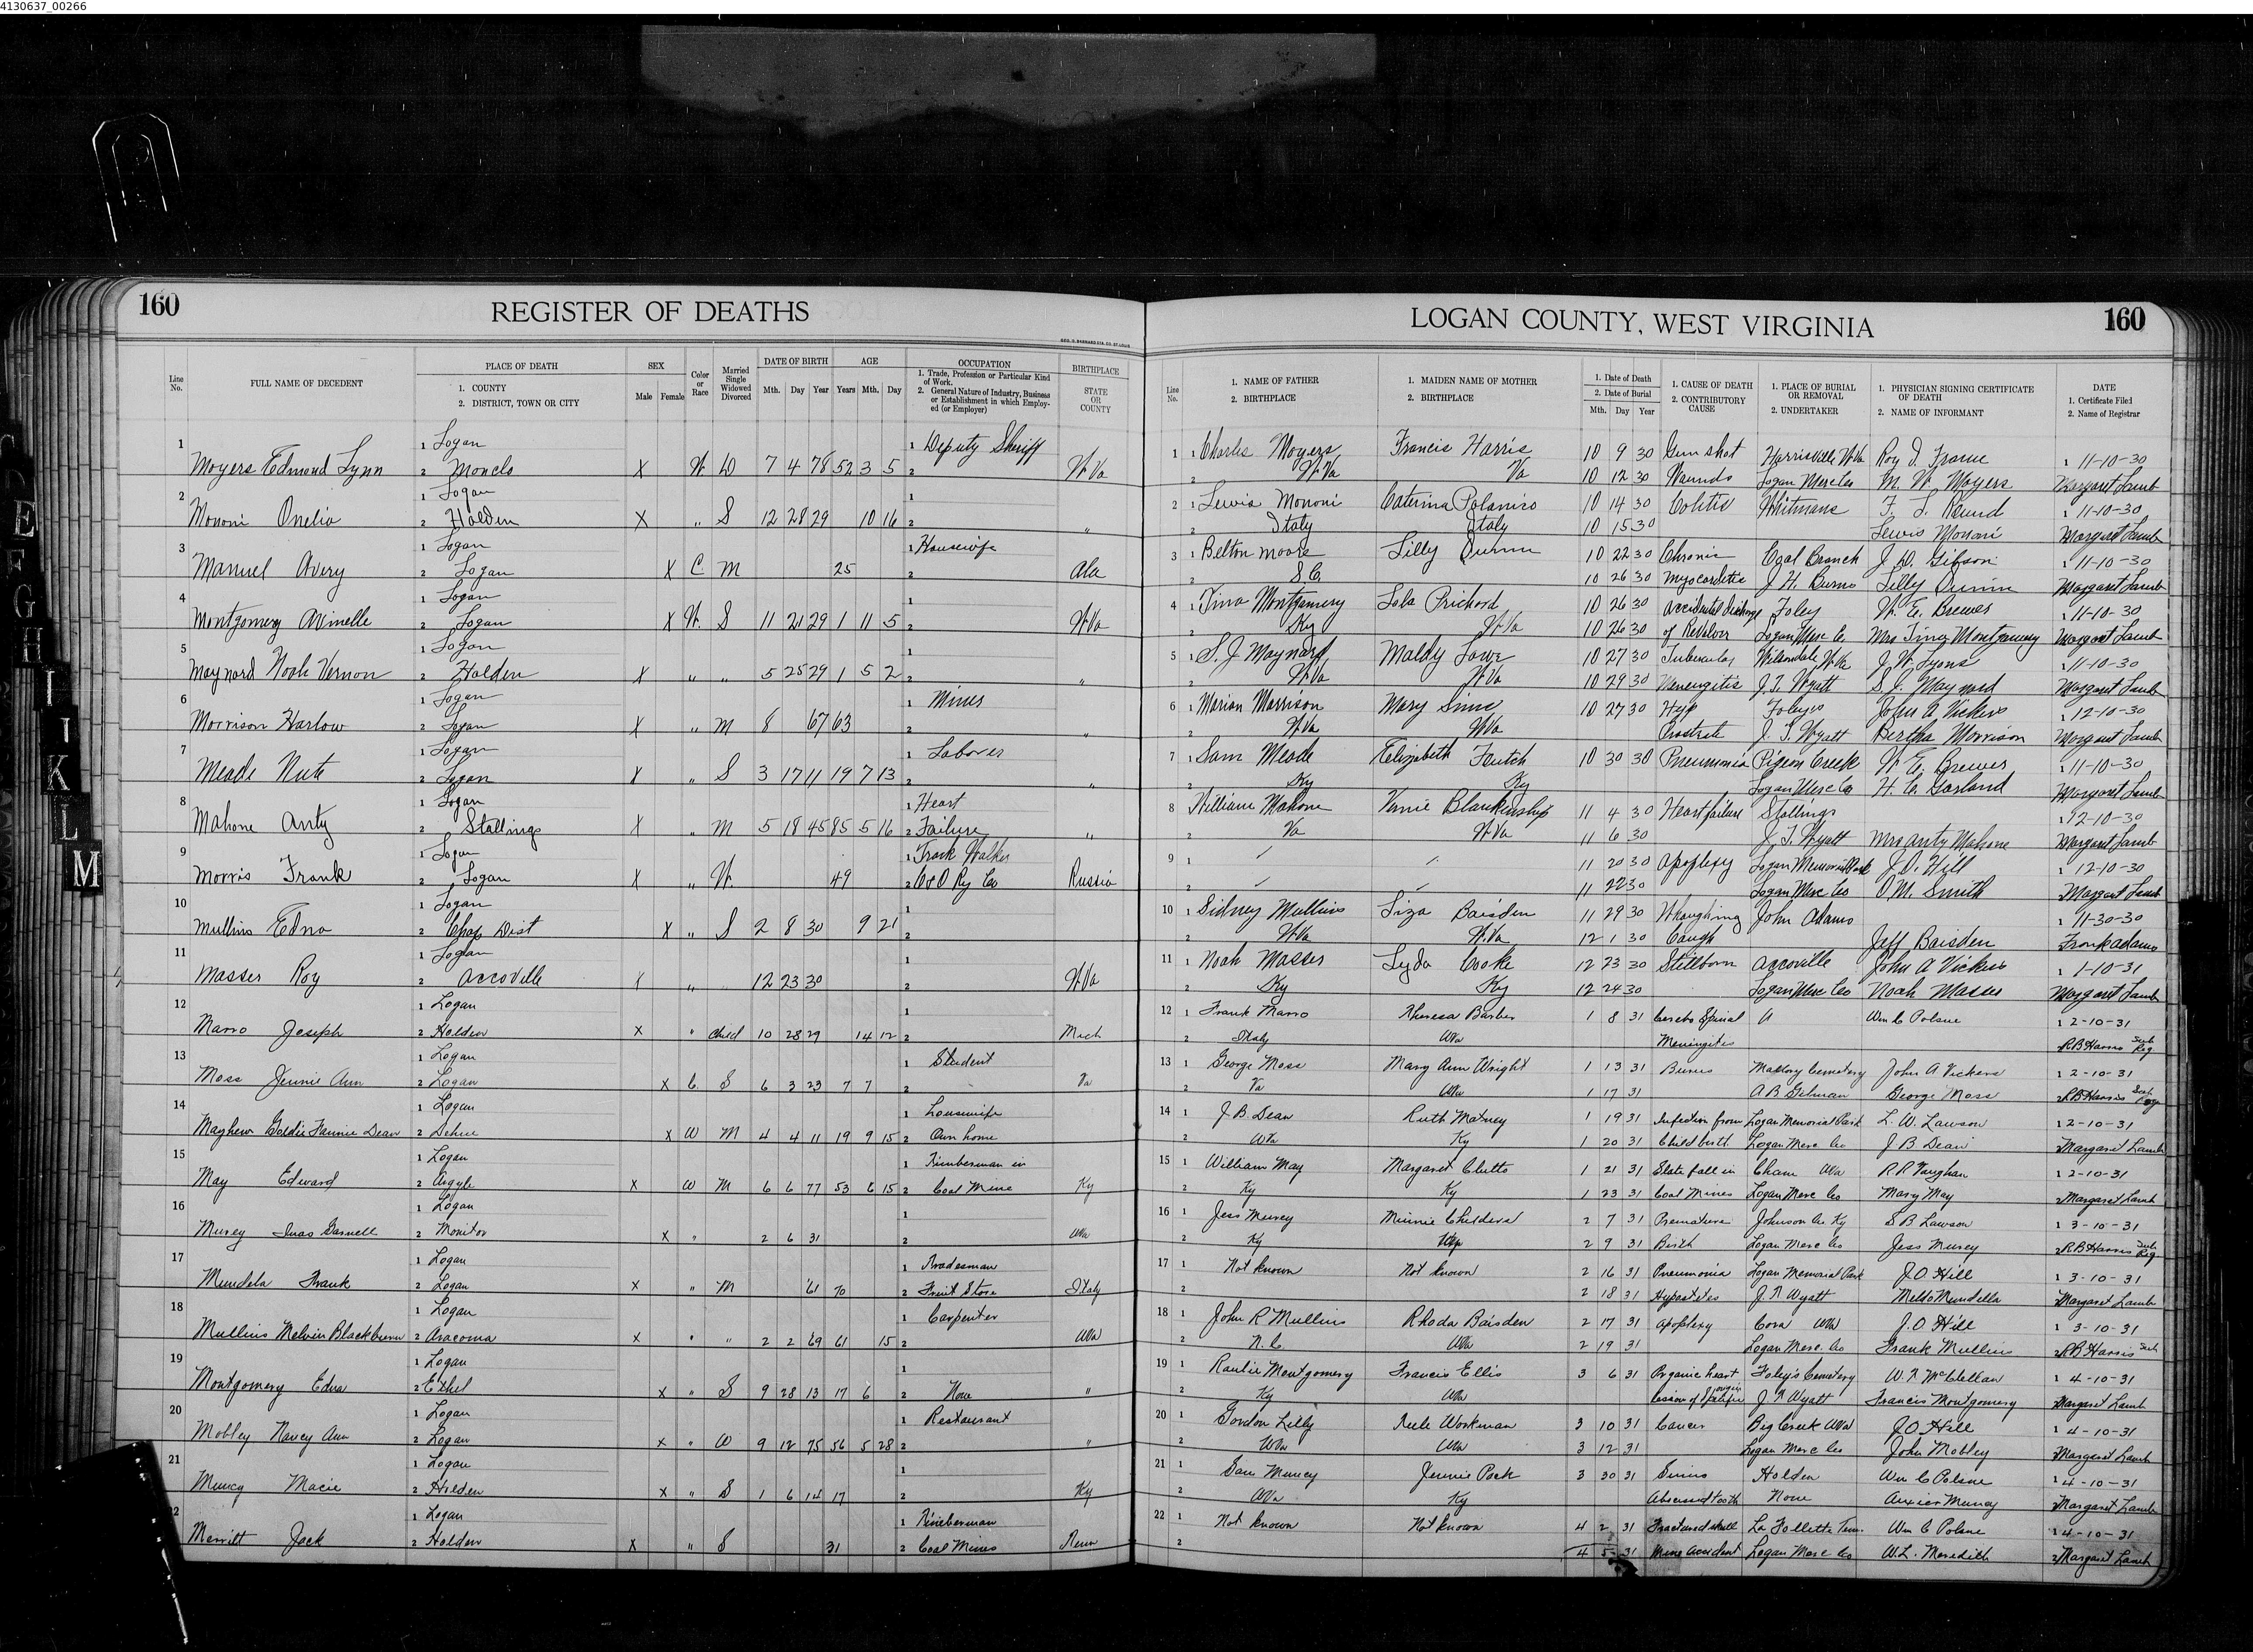 4130637_00266
160
REGISTER OF DEATHS
LOGAN COUNTY, WEST VIRGINIA
160
Line No.
FULL NAME OF DECEDENT
PLACE OF DEATH
1. COUNTY
2. DISTRICT, TOWN OR CITY
SEX
Male Female
Color or Race
Married Single Widowed Divorced
DATE OF BIRTH
Mth. Day Year
AGE
Years Mth. Day
OCCUPATION
1. Trade, Profession or Particular Kind of Work.
2. General Nature of Industry, Business or Establishment in which Employed (or Employer)
BIRTHPLACE
STATE OR COUNTY
Line No.
1. NAME OF FATHER
2. BIRTHPLACE
1. MAIDEN NAME OF MOTHER
2. BIRTHPLACE
1. Date of Death
2. Date of Burial
Mth. Day Year
1. CAUSE OF DEATH
2. CONTRIBUTORY CAUSE
1. PLACE OF BURIAL OR REMOVAL
2. UNDERTAKER
1. PHYSICIAN SIGNING CERTIFICATE OF DEATH
2. NAME OF INFORMANT
DATE
1. Certificate Filed
2. Name of Registrar
1 1 Logan 1 Deputy Sheriff 1 1 Charles Moyers Francis Harris 10 9 30 Gun shot Harrisville W Va Roy 1 11-10-30
Moyers Edmond Lynn 2 X W. 7 4 78 52 3 5 2 W Va 2 W Va Va 10 12 30 Wounds Logan Merc Co M. W. Moyers Margaret Lamb
2 1 Logan 1 2 1 Lewis Mononi Caterina 10 14 30 Colitis Whitmans F. L. 1 11-10-30
Mononi Onelio 2 Holden X " S 12 28 29 10 16 2 " 2 Italy Italy 10 15 30 Lewis Monari Margaret Lamb
3 1 Logan 1 Housewife 3 1 Belton Moore Lilly Dunn 10 22 30 Chronic Coal Branch J. D. Gibson 1 11-10-30
Manuel Avery 2 Logan X C M 25 2 Ala 2 S.C. 10 26 30 Myocarditis J. H. Burns Lilly Dunn Margaret Lamb
4 1 Logan 1 4 1 Tino Montgomery Lola Prichard 10 26 30 Accidental discharge Foley W. E. Brewer 1 11-10-30
Montgomery Avinelle 2 Logan X W. S 11 21 29 1 11 5 2 W Va 2 Ky W Va 10 26 30 of Revolver Logan Merc Co. Mrs Tino Montgomery Margaret Lamb
5 1 Logan 1 5 1 S. J. Maynard Maldy Lowe 10 27 30 Tubercular Wilsondale W Va J. W. Lyons 1 11-10-30
Maynard Noah Vernon 2 Holden X " " 5 25 29 1 5 2 2 " 2 W Va W Va 10 29 30 Menengitis J. T. Wyatt S. J. Maynard Margaret Lamb
6 1 Logan 1 Miner 6 1 Marion Morrison Mary Sims 10 27 30 Foleys John A Vickers 1 12-10-30
Morrison Harlow 2 Logan X " M 8 67 63 2 " 2 W Va W Va Prostrate J. T. Wyatt Bertha Morrison Margaret Lamb
7 1 Logan 1 Laborer 7 1 Sam Meade Elizabeth 10 30 30 Pneumonia Pigeon Creek W. E. Brewer 1 11-10-30
Meade Nute 2 Logan X " S 3 17 11 19 7 13 2 " 2 Ky Ky Logan Merc Co H. C. Garland Margaret Lamb
8 1 Logan 1 Heart 8 1 William Mahone Vanie Blankinship 11 4 30 Heart failure Stallings 1 12-10-30
Mahone Anty 2 Stallings X " M 5 18 45 85 5 16 2 Failure " 2 Va W Va 11 6 30 J. T. Wyatt Mrs Anty Mahone Margaret Lamb
9 1 Logan 1 Track Walker 9 1 11 20 30 Apoplexy Logan Memorial Park J. O. Hill 1 12-10-30
Morris Frank 2 Logan X " W. 49 2 C & O Ry Co Russia 2 11 22 30 Logan Merc Co O. M. Smith Margaret Lamb
10 1 Logan 1 10 1 Sidney Mullins Liza Baisden 11 29 30 Whooping John Adams 1 11-30-30
Mullins Edna 2 Chap Dist X " S 2 8 30 9 21 2 2 W Va W Va 12 1 30 Cough Jeff Baisden Frank Adams
11 1 Logan 1 11 1 Noah Masser Lyda Cooke 12 23 30 Stillborn Accoville John A Vickers 1 1-10-31
Masser Roy 2 Accoville X " 12 23 30 2 W Va 2 Ky Ky 12 24 30 Logan Merc Co Noah Masser Margaret Lamb
12 1 Logan 1 12 1 Frank Marro Theresa Barber 1 8 31 Cerebro Spinal Wm C Polsue 1 2-10-31
Marro Joseph 2 Holden X " Child 10 28 29 14 12 2 Mich 2 Italy WVa Meningites 2 RB Harris Sub Reg
13 1 Logan 1 Student 13 1 George Moss Mary Ann Wright 1 13 31 Burns Mallory Cemetery John A Vickers 1 2-10-31
Moss Jennie Ann 2 Logan X C S 6 3 23 7 7 2 Va 2 Va WVa 1 17 31 A B Gilman George Moss 2 RB Harris Sub Reg
14 1 Logan 1 Housewife 14 1 J. B. Dean Ruth Matney 1 19 31 Infection from Logan Memorial Park L. W. Lawson 1 2-10-31
Mayhew Goldie Fannie Dean 2 Dehue X W M 4 4 11 19 9 15 2 Own home 2 WVa Ky 1 20 31 Child birth Logan Merc Co J B Dean 2 Margaret Lamb
15 1 Logan 1 Timberman in 15 1 William May Margaret 1 21 31 Slate fall in WVa R R Vaughan 1 2-10-31
May Edward 2 Argyle X W M 6 6 77 53 6 15 2 Coal Mine Ky 2 Ky Ky 1 23 31 Coal Mines Logan Merc Co Mary May 2 Margaret Lamb
16 1 Logan 1 16 1 Jess Murey Minnie Childers 2 7 31 Premature Johnson Co. Ky S B Lawson 1 3-10-31
Murey 2 Monitor X " 2 6 31 2 WVa 2 Ky 2 9 31 Birth Logan Merc Co Jess Murey 2 RB Harris Sub Reg
17 1 Logan 1 Tradesman 17 1 Not Known Not Known 2 16 31 Pneumonia Logan Memorial Park J. O. Hill 1 3-10-31
Mundela Frank 2 Logan X " M 61 70 2 Fruit Store Italy 2 2 18 31 J. T. Wyatt Mundella Margaret Lamb
18 1 Logan 1 Carpenter 18 1 John R Mullins Rhoda Baisden 2 17 31 Apoplexy Cora WVa J. O. Hill 1 3-10-31
Mullins Melvin Blackburn 2 Aracoma X " " 2 2 69 61 15 2 WVa 2 N.C. WVa 2 19 31 Logan Merc. Co Frank Mullins 2 RB Harris Sub
19 1 Logan 1 19 1 Montgomery Francis Ellis 3 6 31 Organic heart Foley's Cemetery W. T. McClellan 1 4-10-31
Montgomery Edna 2 Ethel X " S 9 28 13 17 6 2 None " 2 Ky WVa lesion of Specific origin J. T. Wyatt Francis Montgomery Margaret Lamb
20 1 Logan 1 Restaurant 20 1 Gordon Lilly Workman 3 10 31 Cancer Big Creek WVa J. O. Hill 1 4-10-31
Mobley Nancy Ann 2 Logan X " W 9 12 75 56 5 28 2 " 2 WVa WVa 3 12 31 Logan Merc Co John Mobley Margaret Lamb
21 1 Logan 1 21 1 Sam Muncy Jennie Pack 3 30 31 Sinus Holden Wm C Polsue 1 4-10-31
Muncy Macie 2 Holden X " S 1 6 14 17 2 Ky 2 WVa Ky Abscessed tooth None Muncy 2 Margaret Lamb
2 1 Logan 1 Timberman 22 1 Not Known Not Known 4 2 31 Fractured skull La Follette Tenn. Wm C Polsue 1 4-10-31
Merritt Jack 2 Holden X " S 31 2 Coal Mines Tenn 2 4 5 31 Mine Accident Logan Merc Co W. L. Meredith 2 Margaret Lamb
E
F
G
H
I
J
K
L
M